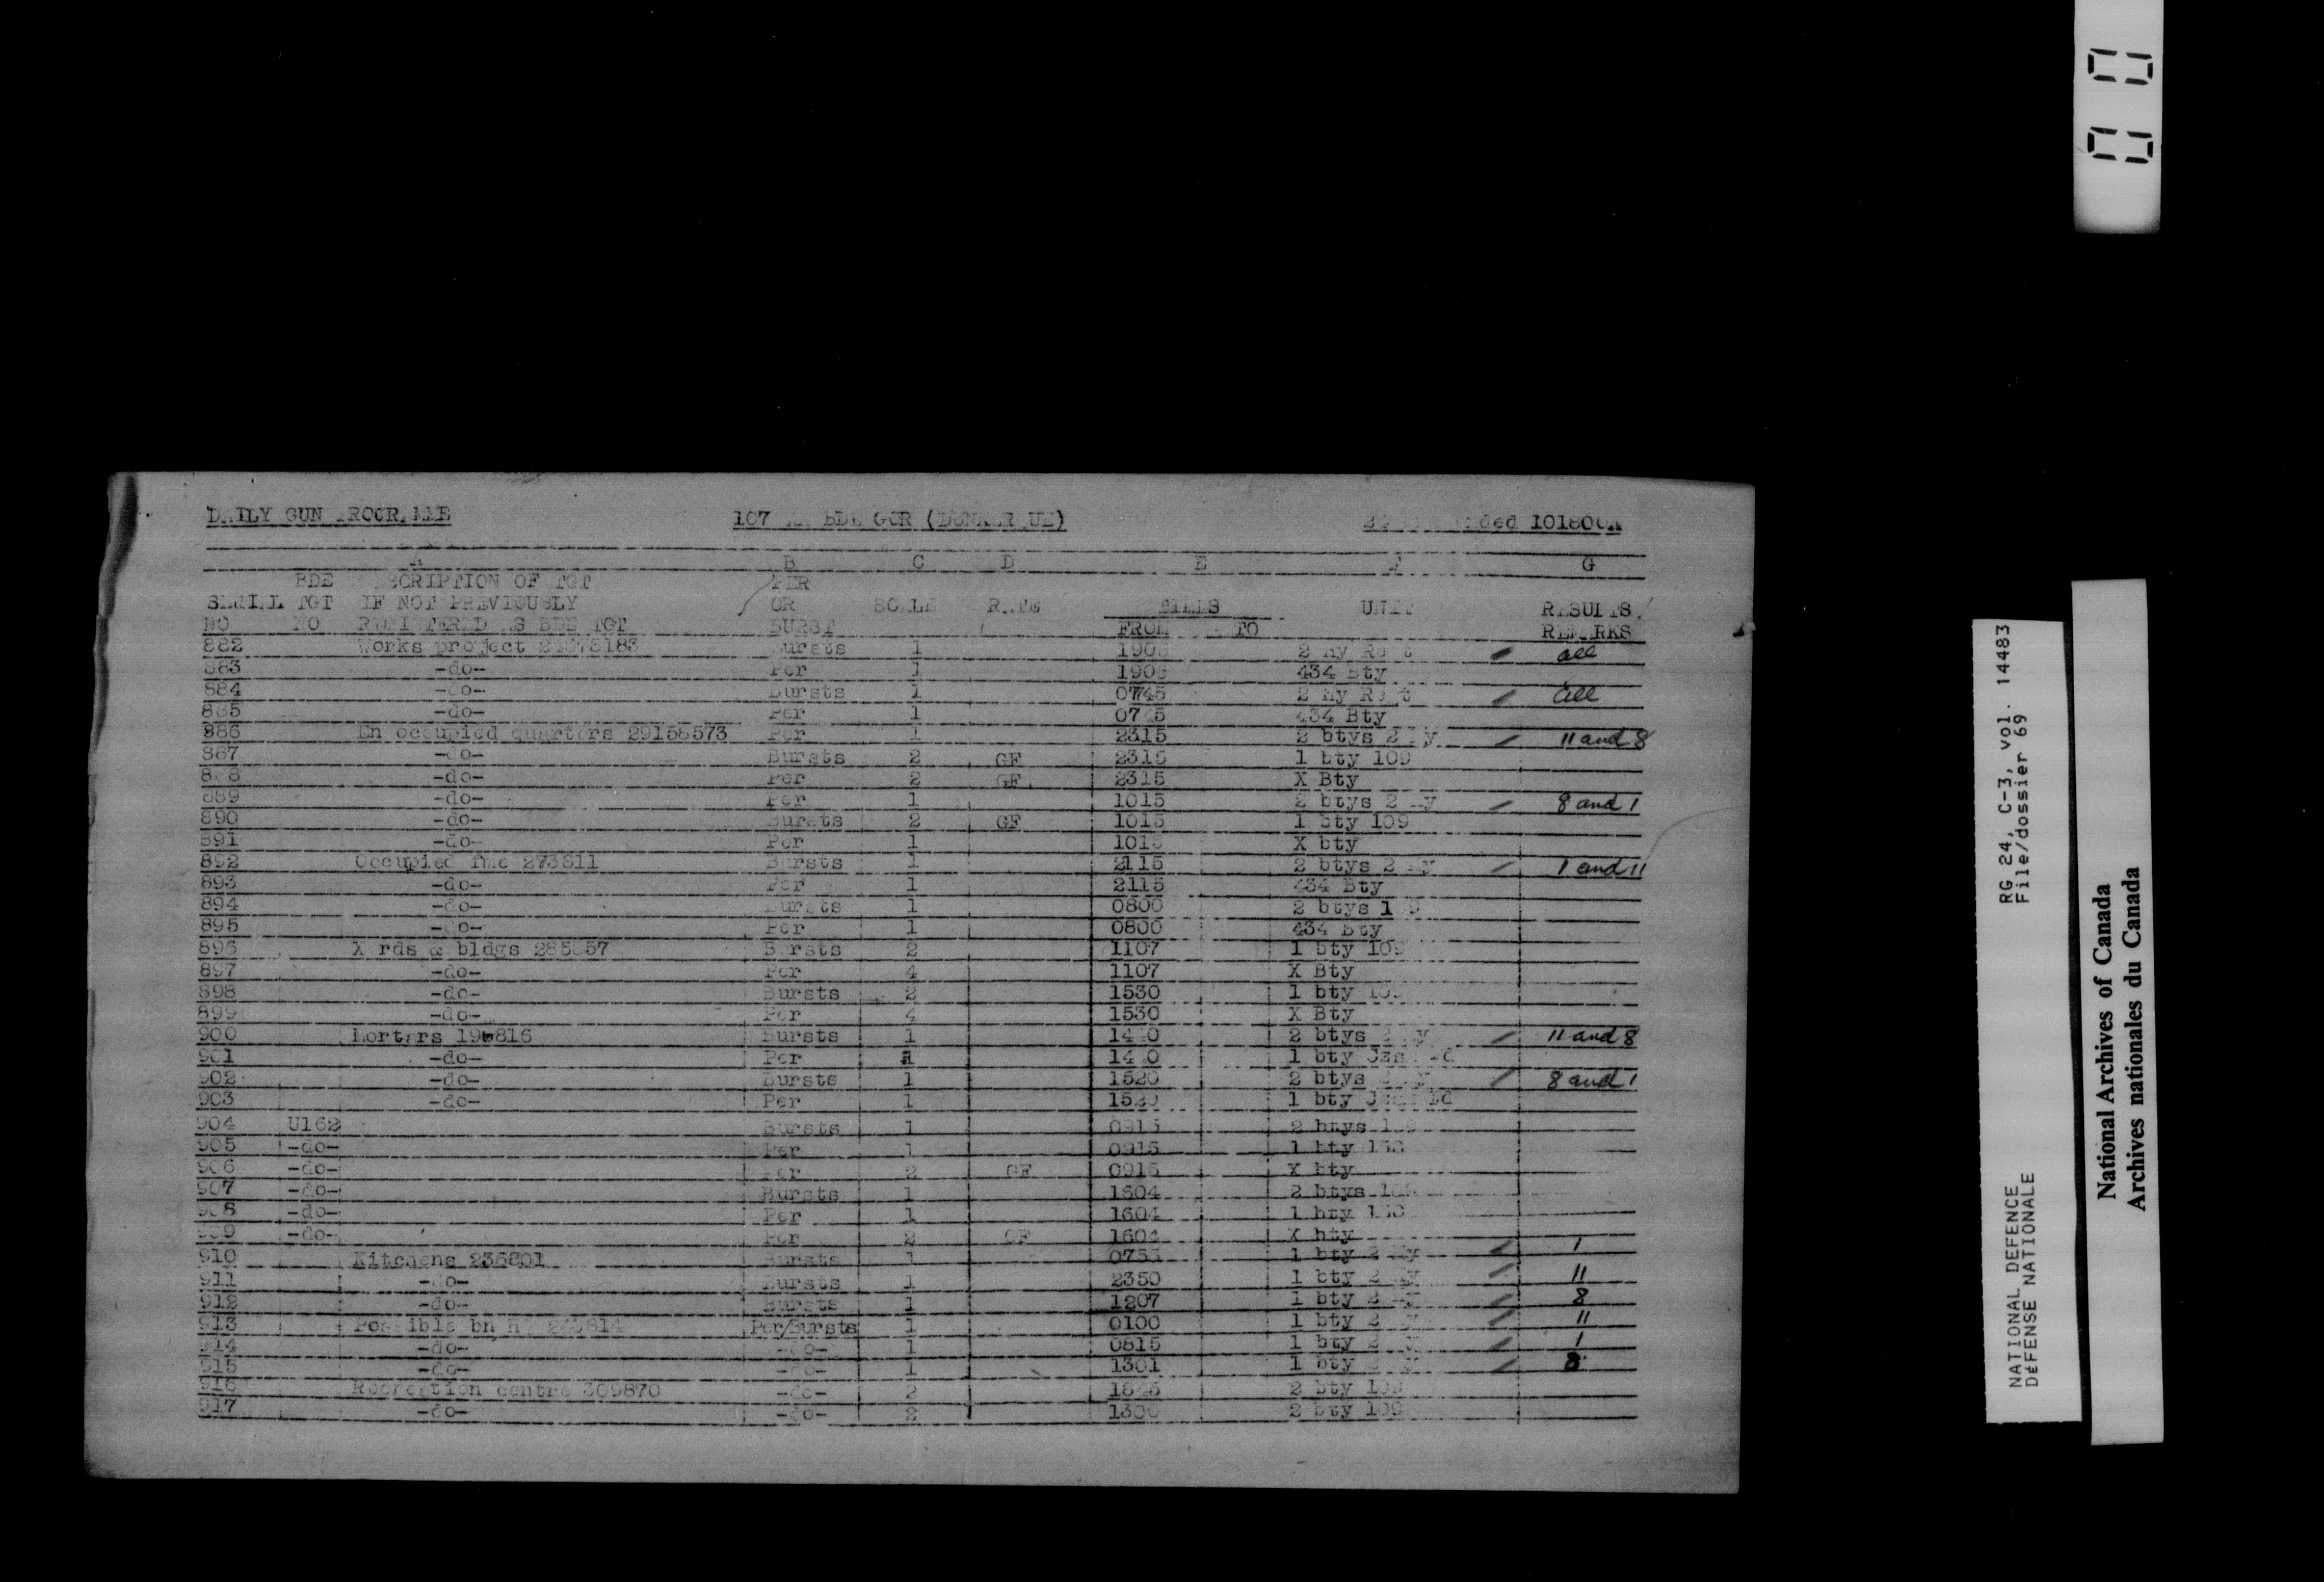 DAILY GUN PROGRAMME 107 BDE GOR (DUNKERQUE) ended 101800A
A B C D E F G
BDE DESCRIPTION OF TGT PER
SERIAL TGT IF NOT PREVIOUSLY OR SCALE RATE TIMES UNIT RESULTS/
NO NO REGISTERED AS BDE TGT BURST FROM TO REMARKS
882 Works project Bursts 1 2 Hy Regt all
883 -do- Per 1 434 Bty
884 -do- Bursts 1 0745 2 Hy Regt all
885 -do- Per 1 434 Bty
886 En occupied quarters 29158573 Per 1 2315 2 btys 2 Hy 11 and 8
887 -do- Bursts 2 GF 2315 1 bty 109
888 -do- Per 2 GF 2315 X Bty
889 -do- Per 1 1015 2 btys 2 Hy 8 and 1
890 -do- Bursts 2 GF 1015 1 bty 109
891 -do- Per 1 1015 X bty
892 Occupied 273811 Bursts 1 2115 2 btys 2 Hy 1 and 11
893 -do- Per 1 2115 434 Bty
894 -do- Bursts 1 0800 2 btys
895 -do- Per 1 0800 434 Bty
896 X rds & bldgs Bursts 2 1107 1 bty 109
897 -do- Per 4 1107 X Bty
898 -do- Bursts 2 1530 1 bty
899 -do- Per 4 1530 X Bty
900 Mortars Bursts 1 2 btys 11 and 8
901 -do- Per 1 1 bty
902 -do- Bursts 1 1520 2 btys 8 and 1
903 -do- Per 1 1520 1 bty
904 U162 Bursts 1 0915 2 btys
905 -do- Per 1 0915 1 bty
906 -do- Per 2 GF 0915 X bty
907 -do- Bursts 1 1604 2 btys
908 -do- Per 1 1604 1 bty
909 -do- Per 2 GF 1604 X bty
910 Kitchens 236801 Bursts 1 1 bty 2 Hy 1
911 -do- Bursts 1 2350 1 bty 2 Hy 11
912 -do- Bursts 1 1207 1 bty 2 Hy 8
913 Possible bn HQ Per/Bursts 1 0100 1 bty 2 11
914 -do- -do- 1 0815 1 bty 2 1
915 -do- -do- 1 1301 1 bty 8
916 Recreation centre 309870 -do- 2 2 bty 109
917 -do- -do- 2 1300 2 bty 109
RG 24, C-3, vol. 14483
File/dossier 69
NATIONAL DEFENCE
DÉFENSE NATIONALE
National Archives of Canada
Archives nationales du Canada